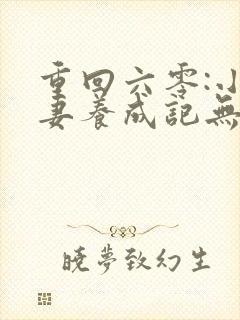 重回六零:小
妻养成记無
晓夢致幻生